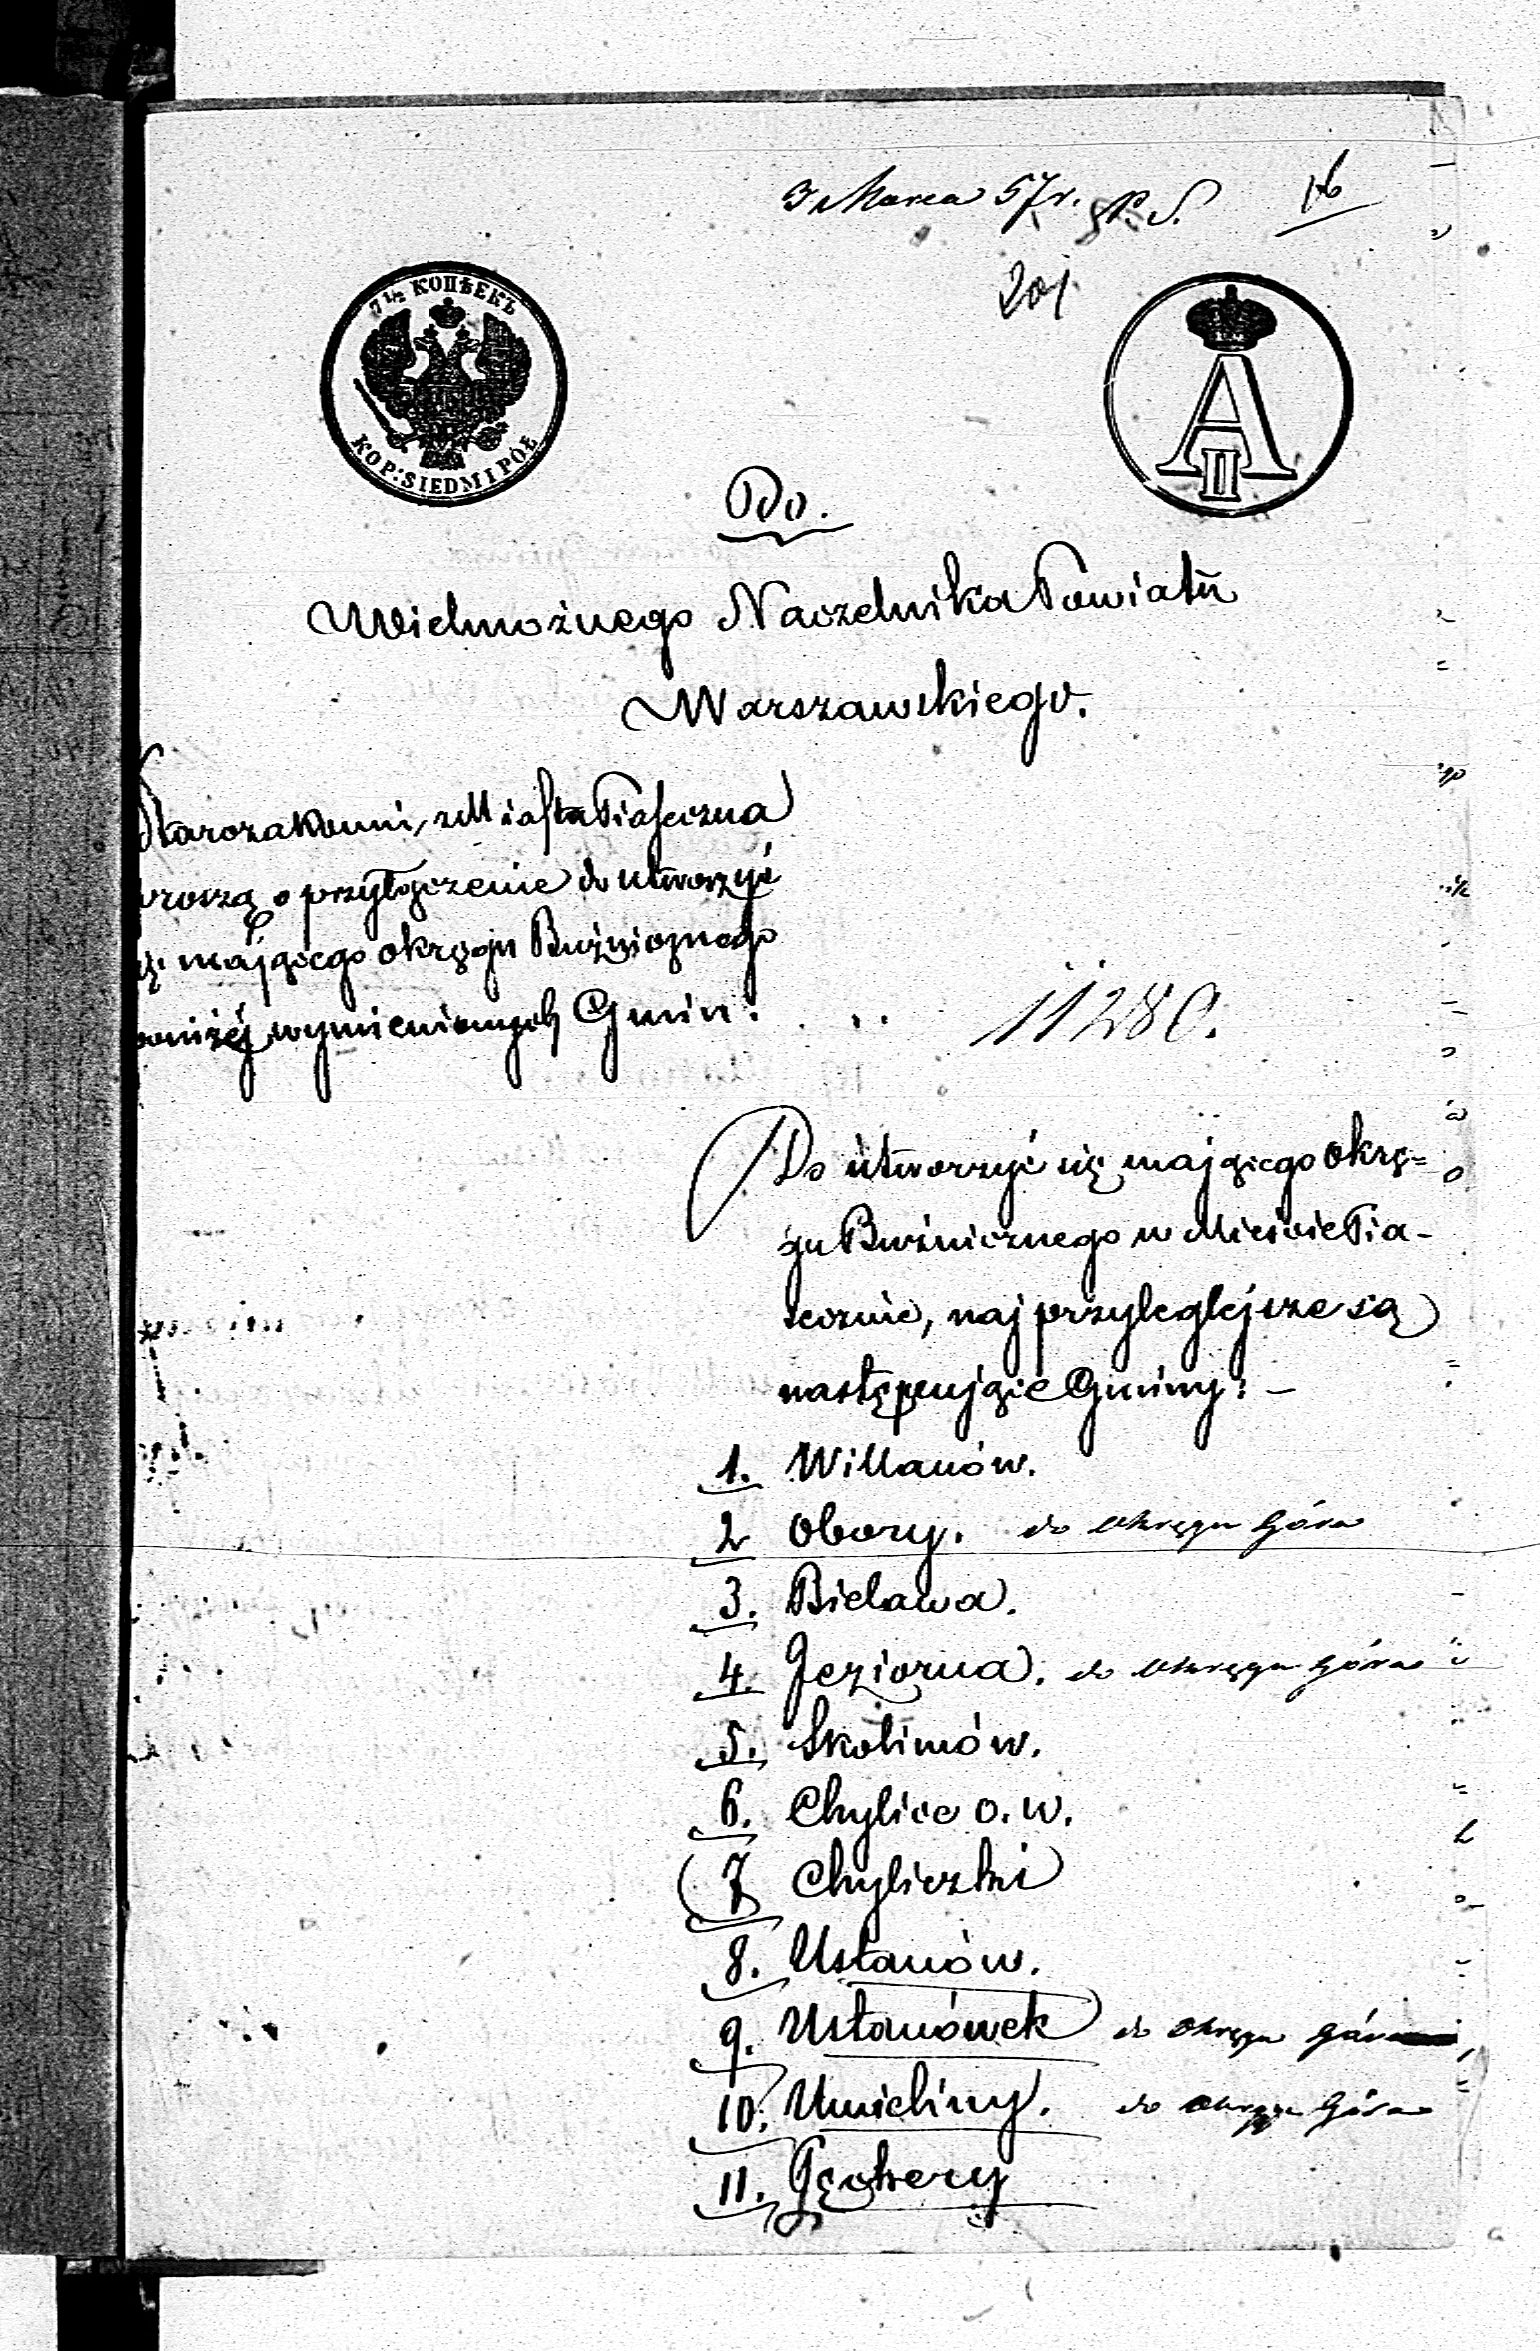 3 Marca 57 r. P. S. 16
201
7½ КОПѢЕКЪ
KOP: SIEDM I PÓŁ
A
II
Do.
Wielmożnego Naczelnika Powiatu
Warszawskiego.
Starozakonni, z Miasta Piaseczna
proszą o przyłączenie do utworzyć
się mającego okręgu Bużnicznego
poniżej wymienionych Gmin.
11280.
Do utworzyć się mającego okrę=
gu Bużnicznego w Mieście Pia-
secznie, najprzyleglejsze są
następujące Gminy: –
1. Willanów.
2 Obory. do Okręgu Góra
3. Bielawa.
4. Jeziorna. do Okręgu Góra
5. Skolimów.
6. Chylice o. w.
7 Chyliczki
8. Ustanów.
9. Ustanówek do Okręgu Góra
10. Uwieliny. do Okręgu Góra
11.